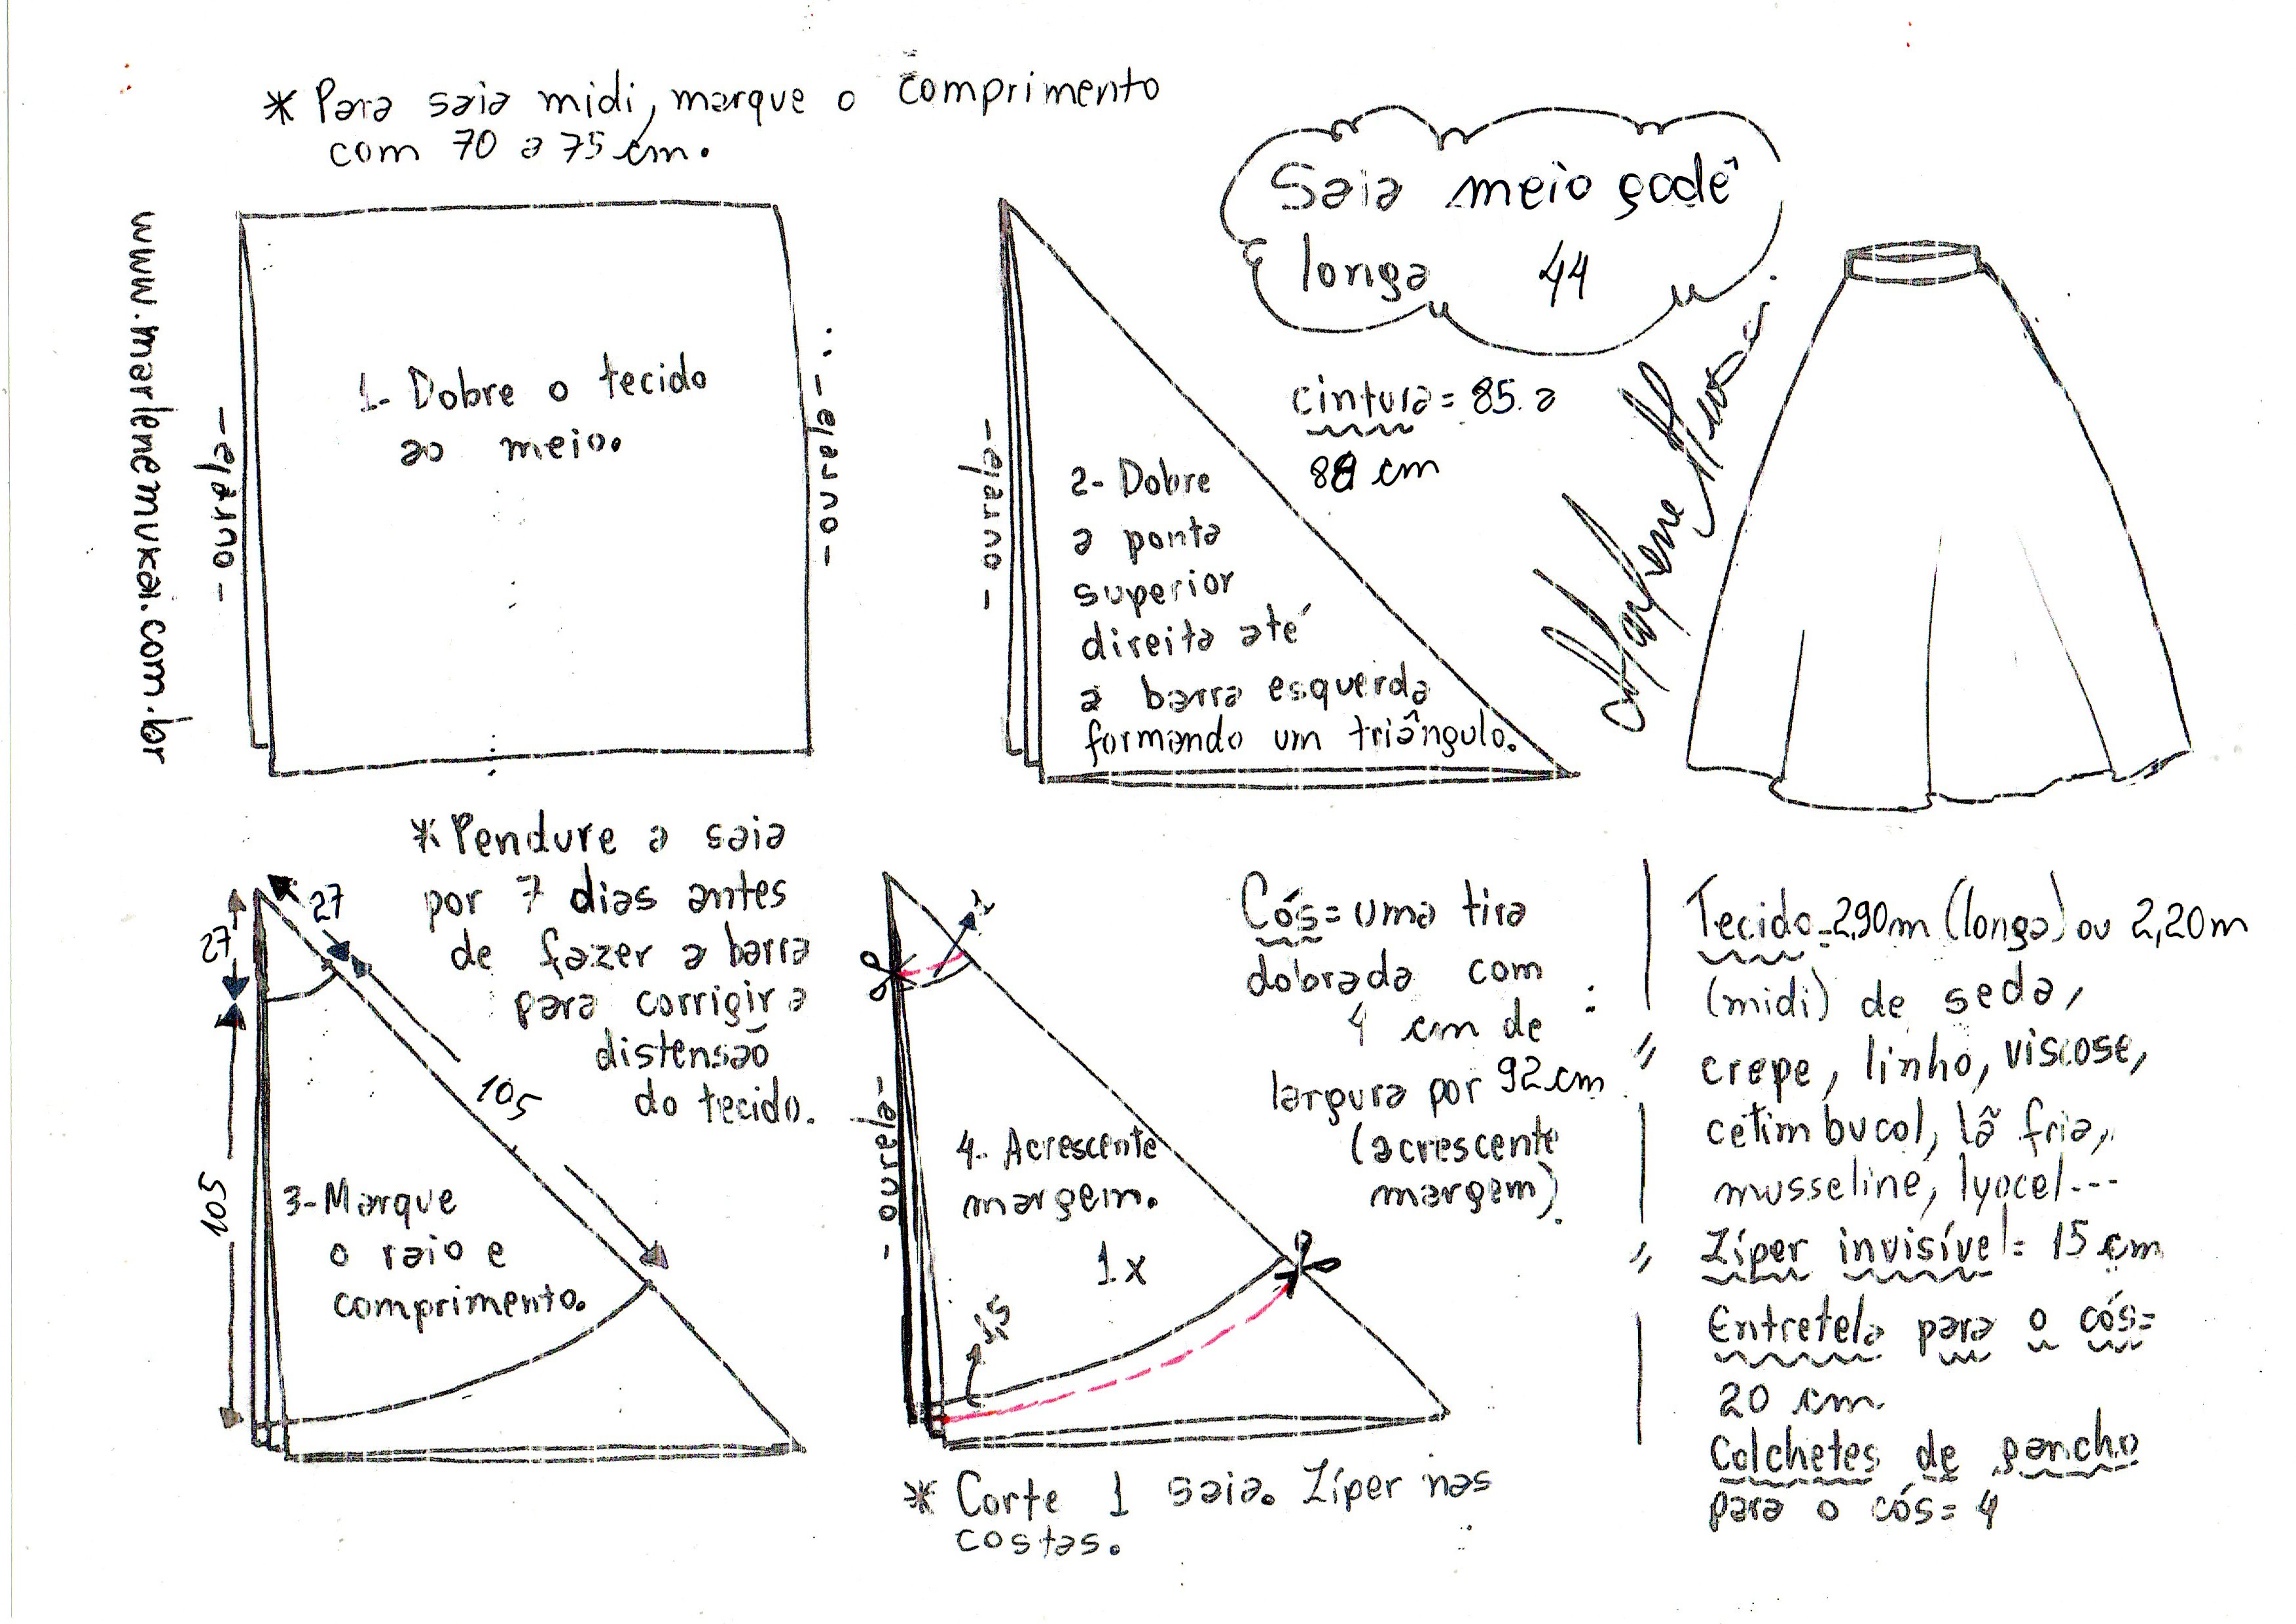 * Para saia midi, marque o comprimento
com 70 a 75 cm.
www.marlenemukai.com.br
Saia meio godê
longa 44
- ourela -
1- Dobre o tecido
ao meio.
- ourela -
- ourela -
2- Dobre
a ponta
superior
direita até
a barra esquerda
formando um triângulo.
cintura = 85 a
88 cm
Marlene Mukai
* Pendure a saia
por 7 dias antes
de fazer a barra
para corrigir a
distensão
do tecido.
27
27
105
105
3- Marque
o raio e
comprimento.
- ourela -
4- Acrescente
margem.
1x
1,5
* Corte 1 saia. Zíper nas
costas.
Cós = uma tira
dobrada com
4 cm de
largura por 92 cm
(acrescente
margem).
Tecido = 2,90m (longa) ou 2,20m
(midi) de seda,
crepe, linho, viscose,
cetim bucol, lã fria,
musseline, lyocel...
Zíper invisível = 15 cm
Entretela para o cós =
20 cm
Colchetes de gancho
para o cós = 4